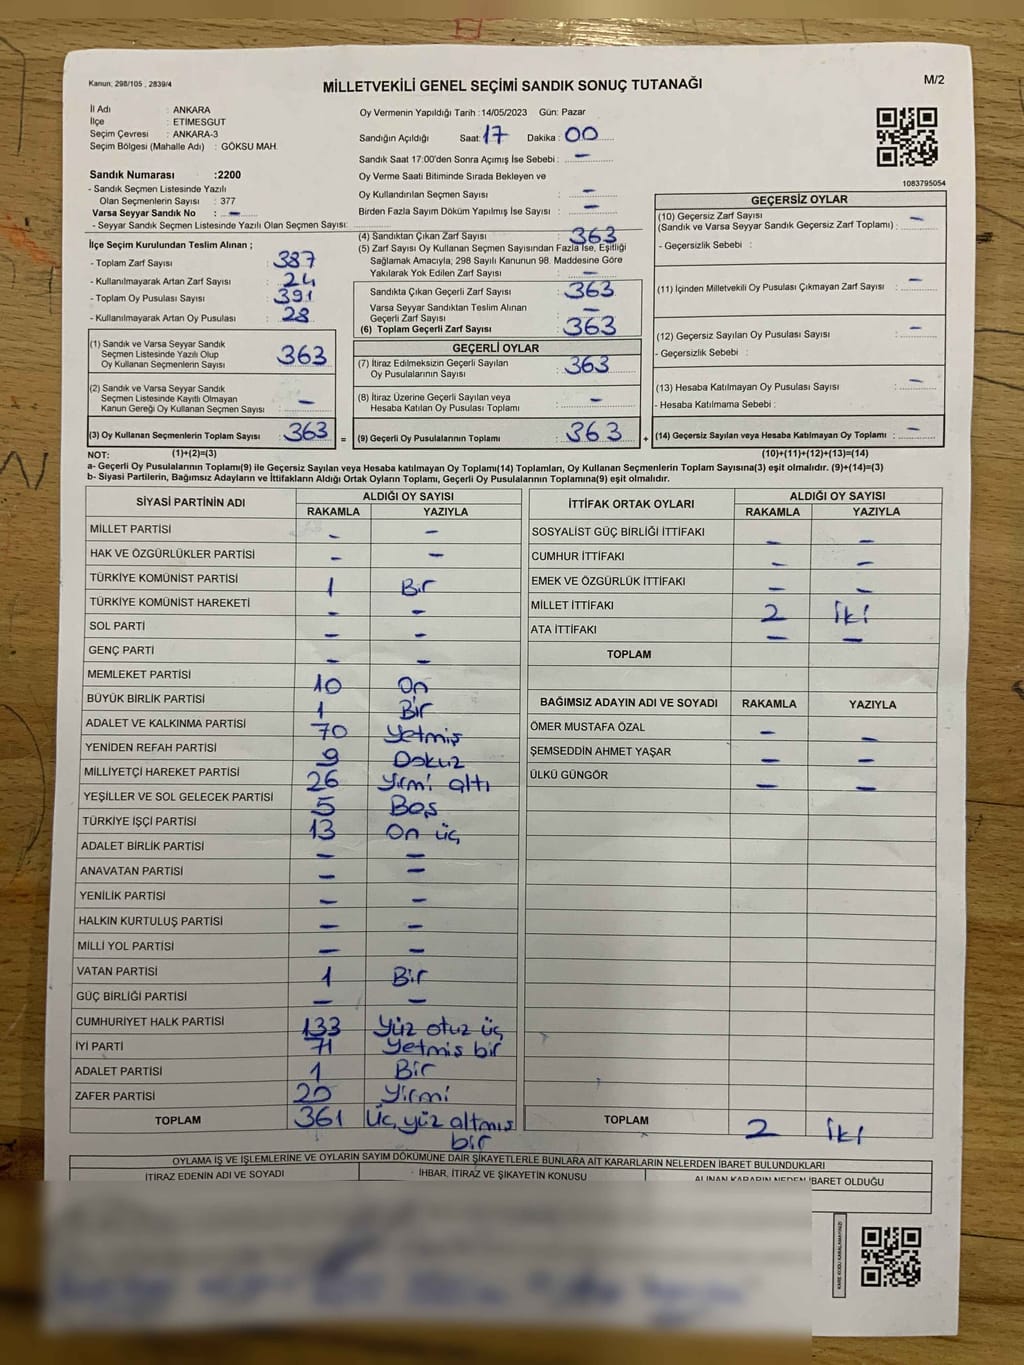 Kanun; 298/105 , 2839/4
MİLLETVEKİLİ GENEL SEÇİMİ SANDIK SONUÇ TUTANAĞI
M/2
İl Adı : ANKARA
İlçe : ETİMESGUT
Seçim Çevresi : ANKARA-3
Seçim Bölgesi (Mahalle Adı) : GÖKSU MAH.
Oy Vermenin Yapıldığı Tarih :14/05/2023 Gün: Pazar
Sandığın Açıldığı Saat: 17 Dakika: 00
Sandık Saat 17:00'den Sonra Açılmış İse Sebebi : -
Oy Verme Saati Bitiminde Sırada Bekleyen ve
Oy Kullandırılan Seçmen Sayısı : -
Birden Fazla Sayım Döküm Yapılmış İse Sayısı : -
Sandık Numarası :2200
- Sandık Seçmen Listesinde Yazılı
Olan Seçmenlerin Sayısı : 377
Varsa Seyyar Sandık No : -
- Seyyar Sandık Seçmen Listesinde Yazılı Olan Seçmen Sayısı:
1083795054
İlçe Seçim Kurulundan Teslim Alınan ;
- Toplam Zarf Sayısı : 387
- Kullanılmayarak Artan Zarf Sayısı : 24
- Toplam Oy Pusulası Sayısı : 391
- Kullanılmayarak Artan Oy Pusulası : 28
(1) Sandık ve Varsa Seyyar Sandık
Seçmen Listesinde Yazılı Olup
Oy Kullanan Seçmenlerin Sayısı : 363
(2) Sandık ve Varsa Seyyar Sandık
Seçmen Listesinde Kayıtlı Olmayan
Kanun Gereği Oy Kullanan Seçmen Sayısı : -
(3) Oy Kullanan Seçmenlerin Toplam Sayısı : 363 =
(4) Sandıktan Çıkan Zarf Sayısı : 363
(5) Zarf Sayısı Oy Kullanan Seçmen Sayısından Fazla İse, Eşitliği
Sağlamak Amacıyla; 298 Sayılı Kanunun 98. Maddesine Göre
Yakılarak Yok Edilen Zarf Sayısı : -
Sandıkta Çıkan Geçerli Zarf Sayısı : 363
Varsa Seyyar Sandıktan Teslim Alınan
Geçerli Zarf Sayısı : -
(6) Toplam Geçerli Zarf Sayısı : 363
GEÇERLİ OYLAR
(7) İtiraz Edilmeksizin Geçerli Sayılan
Oy Pusulalarının Sayısı : 363
(8) İtiraz Üzerine Geçerli Sayılan veya
Hesaba Katılan Oy Pusulası Toplamı : -
(9) Geçerli Oy Pusulalarının Toplamı : 363 +
GEÇERSİZ OYLAR
(10) Geçersiz Zarf Sayısı
(Sandık ve Varsa Seyyar Sandık Geçersiz Zarf Toplamı) : -
- Geçersizlik Sebebi :
(11) İçinden Milletvekili Oy Pusulası Çıkmayan Zarf Sayısı : -
(12) Geçersiz Sayılan Oy Pusulası Sayısı : -
- Geçersizlik Sebebi :
(13) Hesaba Katılmayan Oy Pusulası Sayısı : -
- Hesaba Katılmama Sebebi :
(14) Geçersiz Sayılan veya Hesaba Katılmayan Oy Toplamı : -
NOT: (1)+(2)=(3) (10)+(11)+(12)+(13)=(14)
a- Geçerli Oy Pusulalarının Toplamı(9) ile Geçersiz Sayılan veya Hesaba katılmayan Oy Toplamı(14) Toplamları, Oy Kullanan Seçmenlerin Toplam Sayısına(3) eşit olmalıdır. (9)+(14)=(3)
b- Siyasi Partilerin, Bağımsız Adayların ve İttifakların Aldığı Ortak Oyların Toplamı, Geçerli Oy Pusulalarının Toplamına(9) eşit olmalıdır.
SİYASİ PARTİNİN ADI ALDIĞI OY SAYISI
RAKAMLA YAZIYLA
MİLLET PARTİSİ - -
HAK VE ÖZGÜRLÜKLER PARTİSİ - -
TÜRKİYE KOMÜNİST PARTİSİ 1 Bir
TÜRKİYE KOMÜNİST HAREKETİ - -
SOL PARTİ - -
GENÇ PARTİ - -
MEMLEKET PARTİSİ 10 On
BÜYÜK BİRLİK PARTİSİ 1 Bir
ADALET VE KALKINMA PARTİSİ 70 Yetmiş
YENİDEN REFAH PARTİSİ 9 Dokuz
MİLLİYETÇİ HAREKET PARTİSİ 26 Yirmi altı
YEŞİLLER VE SOL GELECEK PARTİSİ 5 Beş
TÜRKİYE İŞÇİ PARTİSİ 13 On üç
ADALET BİRLİK PARTİSİ - -
ANAVATAN PARTİSİ - -
YENİLİK PARTİSİ - -
HALKIN KURTULUŞ PARTİSİ - -
MİLLİ YOL PARTİSİ - -
VATAN PARTİSİ 1 Bir
GÜÇ BİRLİĞİ PARTİSİ - -
CUMHURİYET HALK PARTİSİ 133 Yüz otuz üç
İYİ PARTİ 71 Yetmiş bir
ADALET PARTİSİ 1 Bir
ZAFER PARTİSİ 20 Yirmi
TOPLAM 361 Üç yüz altmış
bir
İTTİFAK ORTAK OYLARI ALDIĞI OY SAYISI
RAKAMLA YAZIYLA
SOSYALİST GÜÇ BİRLİĞİ İTTİFAKI - -
CUMHUR İTTİFAKI - -
EMEK VE ÖZGÜRLÜK İTTİFAKI - -
MİLLET İTTİFAKI 2 İki
ATA İTTİFAKI - -
TOPLAM
BAĞIMSIZ ADAYIN ADI VE SOYADI RAKAMLA YAZIYLA
ÖMER MUSTAFA ÖZAL - -
ŞEMSEDDİN AHMET YAŞAR - -
ÜLKÜ GÜNGÖR - -
TOPLAM 2 İki
OYLAMA İŞ VE İŞLEMLERİNE VE OYLARIN SAYIM DÖKÜMÜNE DAİR ŞİKAYETLERLE BUNLARA AİT KARARLARIN NELERDEN İBARET BULUNDUKLARI
İTİRAZ EDENİN ADI VE SOYADI İHBAR, İTİRAZ VE ŞİKAYETİN KONUSU ALINAN KARARIN NEDEN İBARET OLDUĞU